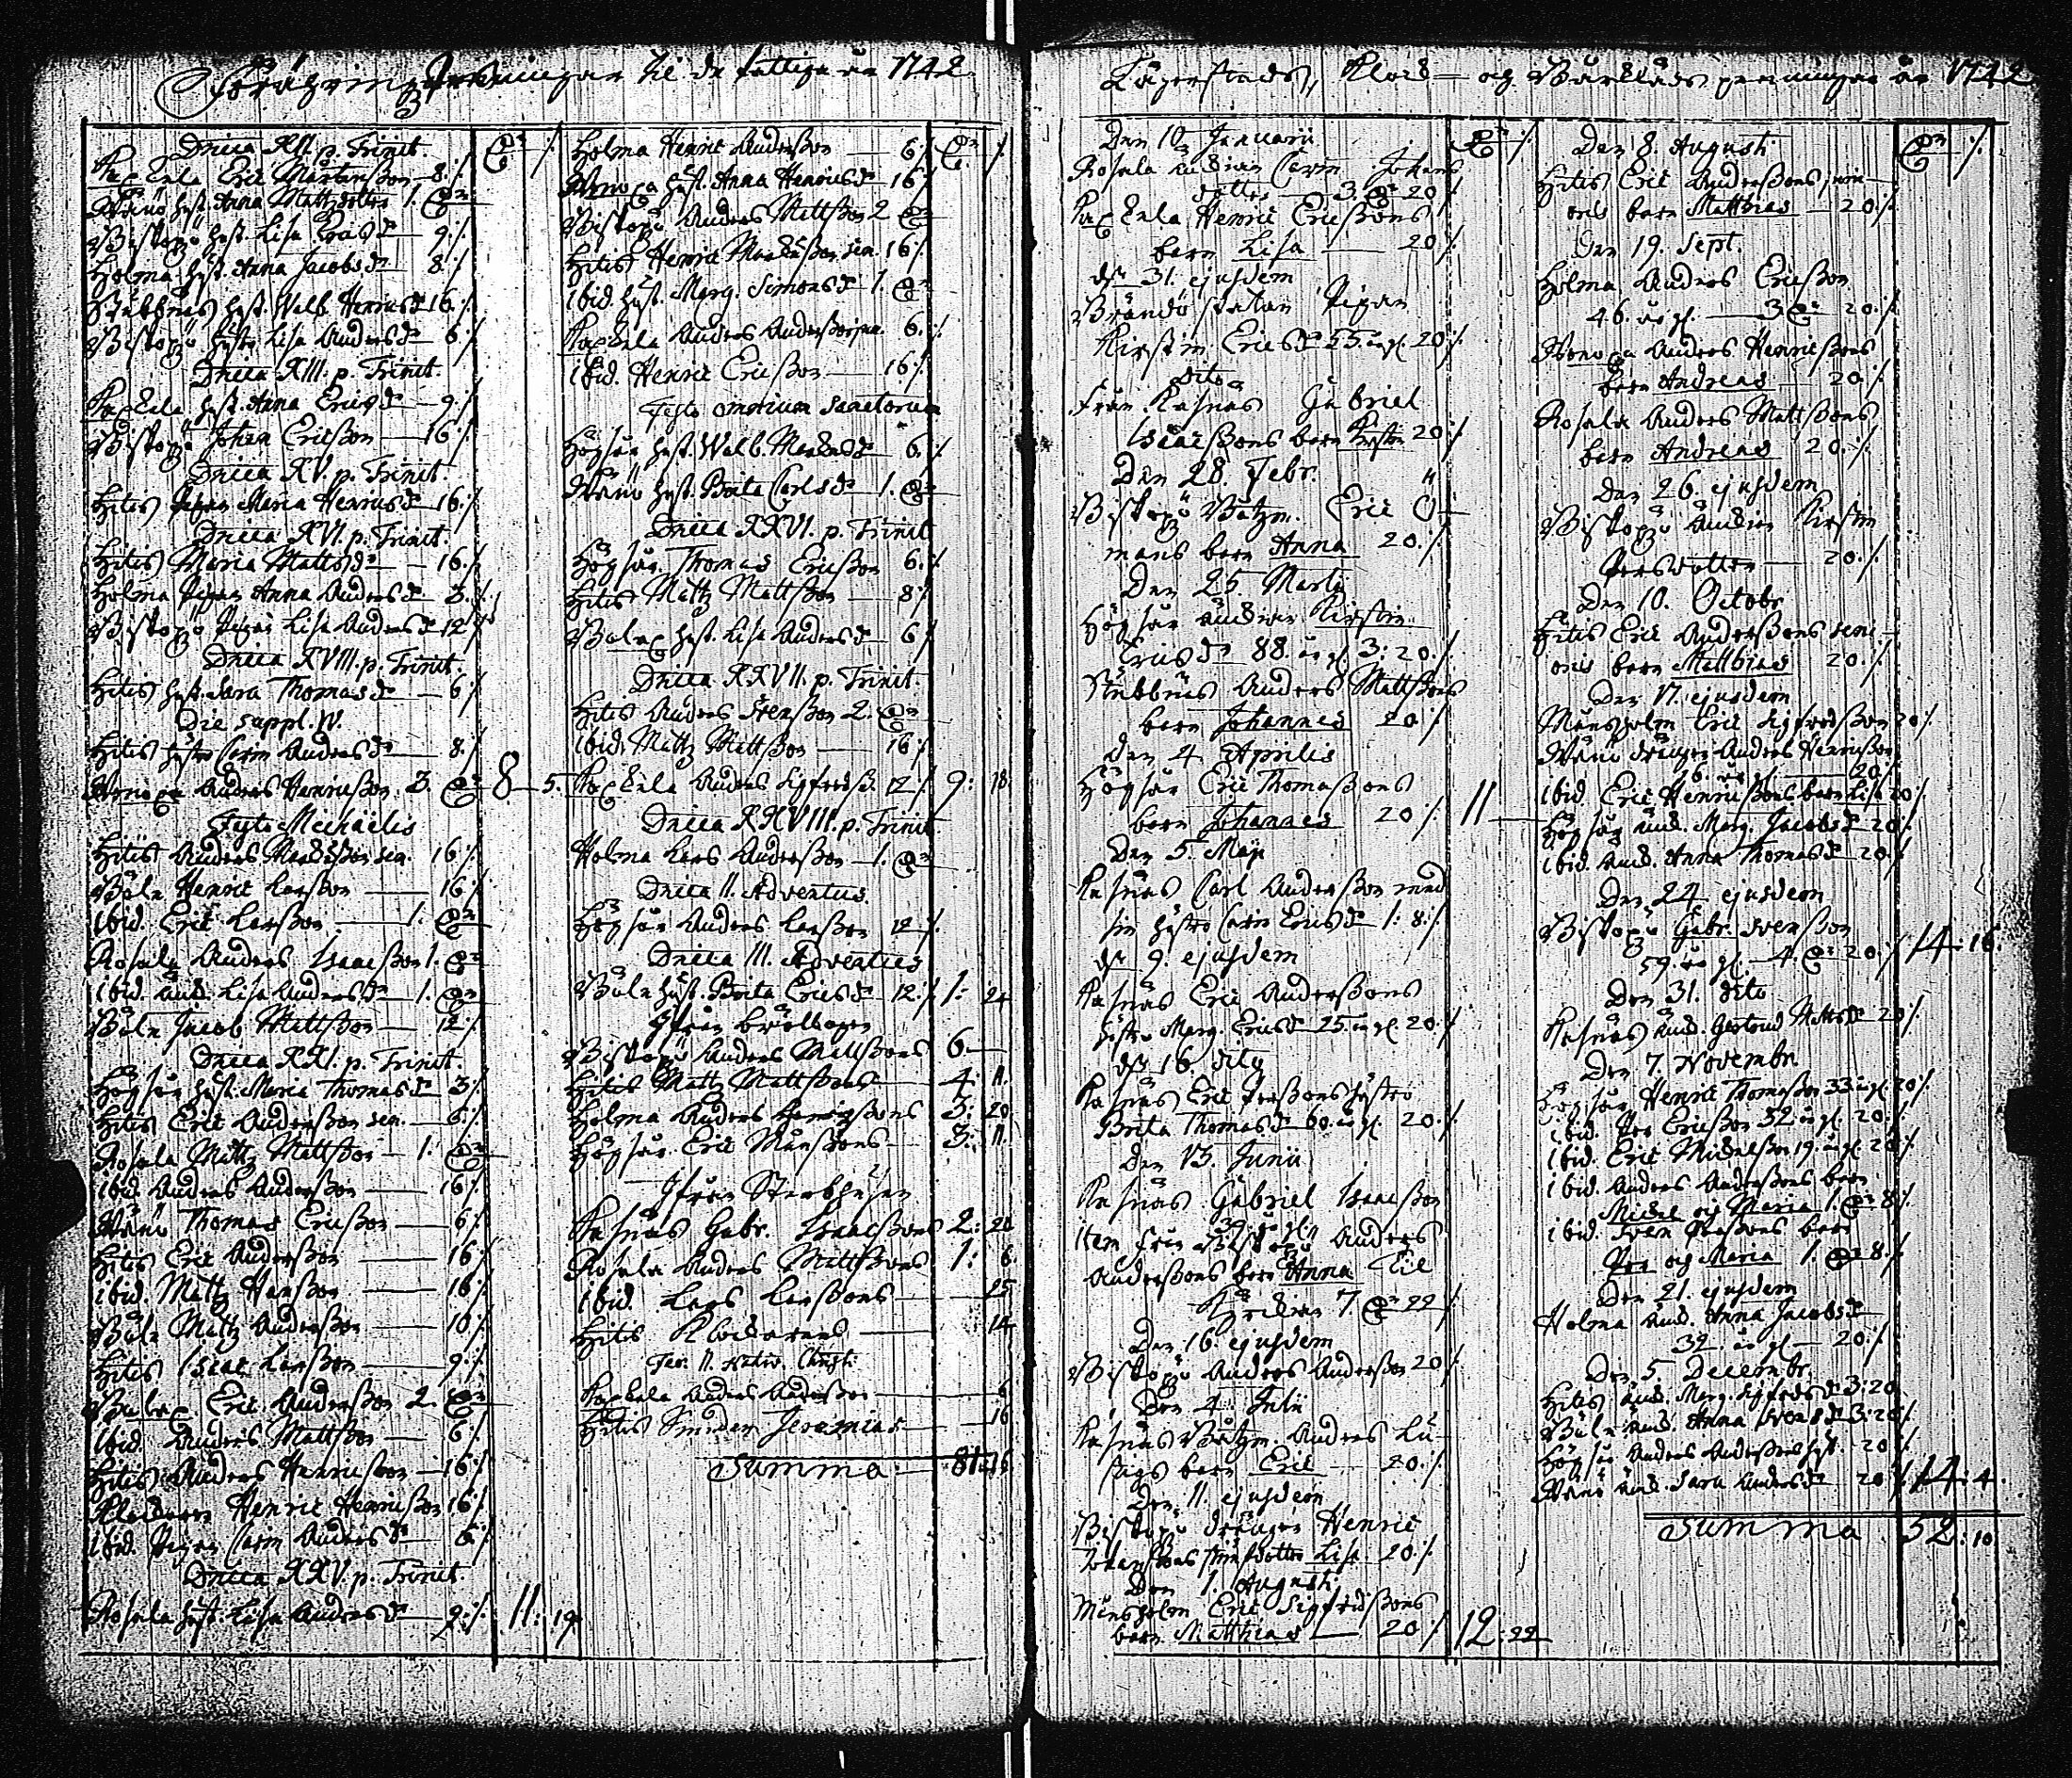 Förährings Penningar til de fattiga år 1742
Dnica XII. p. Trinit.
Erla Eric Mårtensson 8
Wänö hust. Anna Mattzdotter 1.
Biskopzö hust. Lisa Larsd. 9
Holma hust. Anna Jacobsd. 8
Stubbnäs hust. Walb. Henricsd. 16
Biskopzö hustr. Lisa Andersd. 6
Dnica XIII. p. Trinit.
hust. Anna Ericsd. 9
Biskopzö Johan Ericsson 16
Dnica XV. p. Trinit.
Hitis Pigan Maria Henricsd. 16
Dnica XVI. p. Trinit.
Hitis Maria Mattsd. 16
Holma Pigan Anna Andersd. 3
Biskopzö Pigan Lisa Andersd. 12
Dnica XVIII. p. Trinit.
Hitis hust. Sara Thomasd. 6
Die suppl. IV.
Hitis hustr. Carin Andersd. 8
Anders Henricsson 3. 8 5.
Festo Michaelis
Hitis Anders sen. 16
Böle Henric Larsson 16
ibid. Eric Larsson 1.
Rosala Anders Isaacsson 1.
ibid. änk. Lisa Andersd. 1.
Böle Jacob Mattsson 12
Dnica XXI. p. Trinit.
Högsar hust. Maria Thomasd. 3
Hitis Eric Andersson sen. 6
Rosala Mattz Mattsson 1.
ibid. Anders Andersson 16
Wänö Thomas Ericsson 6
Hitis Eric Andersson 16
ibid. Mattz Hansson 16
Böle Mattz Andersson 10
Hitis Isaac Larsson 9
Eric Andersson 2.
ibid. Anders Mattsson 6
Hitis Anders Henricsson 16
Klockaren Henric Henricsson 16
ibid. Pigan Carin Andersd. 6
Dnica XXV. p. Trinit.
Rosala hust. Lisa Andersd. 9 11: 19
Holma Henric Andersson 6
hust. Anna Henricsd. 16
Biskopzö Anders Mattsson 2
Hitis Henric sen. 16
ibid. hust. Marg. Simonsd. 1.
Anders Andersson 6.
ibid. Henric Ericsson 16
Festo omnium Sanctorum
Högsar hust. Walb. 6
Wänö hust. Brita Carlsd. 1.
Dnica XXVI. p. Trinit.
Högsar Thomas Ericsson 6.
Hitis Mattz Mattsson 8
hust. Lisa Andersd. 6
Dnica XXVII. p. Trinit.
Hitis Anders Svensson 2.
ibid. Mattz Mattsson 16
Anders Sigfredss. 12 9: 18.
Dnica XXVIII. p. Trinit.
Holma Lars Andersson 1.
Dnica II. Adventus.
Högsar Anders Larsson 12
Dnica III. Adventus
Böle hust. Brita Ericsd. 12. 1: 24
Ifrån Bröllopen
Biskopzö Anders Mattssons 6.
Hitis Mattz Mattssons 4. 11.
Holma Anders Henricssons 3: 20
Högsar Eric Månssons 3: 11.
Ifrån Sterbhusen
Kasnäs Gabr. Isaacssons 2: 20
Rosala Anders Mattssons 1: 6.
ibid. Lars Larssons 25
Hitis Klockarens 14
Fer. II. Nativ. Christi
Anders Andersson 6
Hitis Smeden Jeremias 16
Summa 81: 16
Lägerstads, Klock- og Bårklädes penningar år 1742
Den 10 Januarii
Rosala Enkian Carin Johans
dotter 3. 20
Henric Ericssons
barn Lisa 20
d. 31. ejusdem
Pigan
Kirstin Ericsd. 55 år gl. 20
dito
Från Kasnäs Gabriel
Isaacssons barn Kirstin 20
Den 28. Febr.
Biskopzö Båtzm. Eric Ö-
mans barn Anna 20.
Den 25. Martij
Högsar Änkian Kirstin
Ericsd. 88. år gl. 3: 20.
Stubbnäs Anders Mattssons
barn Johannes 20
Den 4 Aprilis
Högsar Eric Thomassons
barn Johannes 20 11
Den 5. Maji
Kasnäs Carl Andersson med
sin hustro Carin Ericsd. 1: 8.
d. 9. ejusdem
Kasnäs Eric Anderssons
hustro Marg. Ericsd. 25 år gl. 20.
d. 16. dito
Kasnäs Eric Perssons hustro
Brita Thomasd. 60. år gl. 20.
Den 13. Junii
Kasnäs Gabriel Isaacsson
39. år gl.
Item från Biskopzö Anders
Anderssons barn Anna til
Kyrkian 7 22
Den 16. ejusdem
Biskopzö Anders Andersson 20
Den 4. Julii
Kasnäs Båtzm. Anders Lu-
stigs barn Eric 20.
Den 11. ejusdem
Biskopzö drängen Henric
Lisa 20.
Den 1. Augusti
Månsholm Eric Sigfridssons
barn Matthias 20 12: 22
Den 8. Augusti
Hitis Eric Anderssons juni-
oris barn Matthias 20.
Den 19. Sept.
Holma Anders Ericsson
46. år gl. 3 20.
Anders Henricssons
barn Andreas 20
Rosala Anders Mattssons
barn Andreas 20.
Den 26. ejusdem
Biskopzö Änkian Kirstin
Persdotter 20.
Den 10. Octobr.
Hitis Eric Anderssons seni-
oris barn Matthias 20.
Den 17. ejusdem
Månsholm Eric Sigfredsson 20
Wänö drängen Anders Henricsson
16 år gl. 20
ibid. Eric Henricssons barn Lisa 20
Högsar änk. Marg. Jacobsd. 20
ibid. änk. Anna Thomasd. 20
Den 24 ejusdem
Biskopzö Gabr. Svensson
59. år gl. 4 20 14: 16.
Den 31. dito
Kasnäs änk. Gertrud Mattsd. 20
Den 7. Novembr.
Högsar Henric Thomasson 33 år gl. 20
ibid. Per Ericsson 32 år gl. 20.
ibid. Eric Michelsson 19. år gl. 20
ibid. Anders Anderssons barn
Michel og Maria 1. 8
ibid. Sven Perssons barn
Per og Maria 1. 8
Den 21. ejusdem
Holma änk. Anna Jacobsd.
32 år gl. 20.
Den 5. Decembr.
Hitis änk. Marg. Sigfredsd. 3: 20
Böle änk. Anna 3: 20
Högsar Anders Anderssons hust. 20
Wänö änk. Sara Andersd. 20 14: 4.
Summa 52: 10